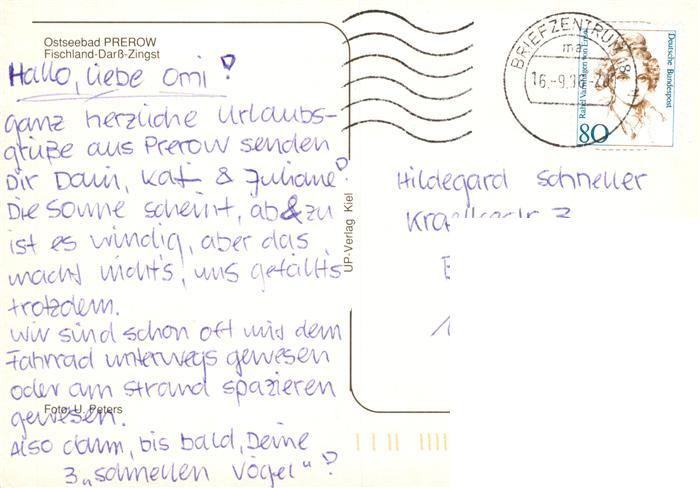 Ostseebad PREROW
Fischland-Darß-Zingst
Hallo, liebe Omi!
ganz herzliche Urlaubs-
grüße aus Prerow senden
Dir Darin, Kat & Juliane!
Die Sonne scheint, ab & zu
ist es windig, aber das
macht nichts, uns gefällt's
trotzdem.
Wir sind schon oft mit dem
Fahrrad unterwegs gewesen
oder am Strand spazieren
gewesen.
Foto: U. Peters
Also dann, bis bald, Deine
3 „schnellen Vögel"!
UP-Verlag Kiel
BRIEFZENTRUM 18
ma
Deutsche Bundespost
Rahel Varnhagen von Ense
80
Hildegard Schneller